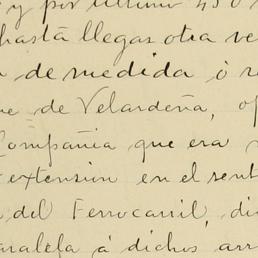 y por último 450
hasta llegar otra ve
de medida ó
de Velardeña, op
Compañia que era
extension en el sent
del Ferrocarril, di
aralela á dichos arr